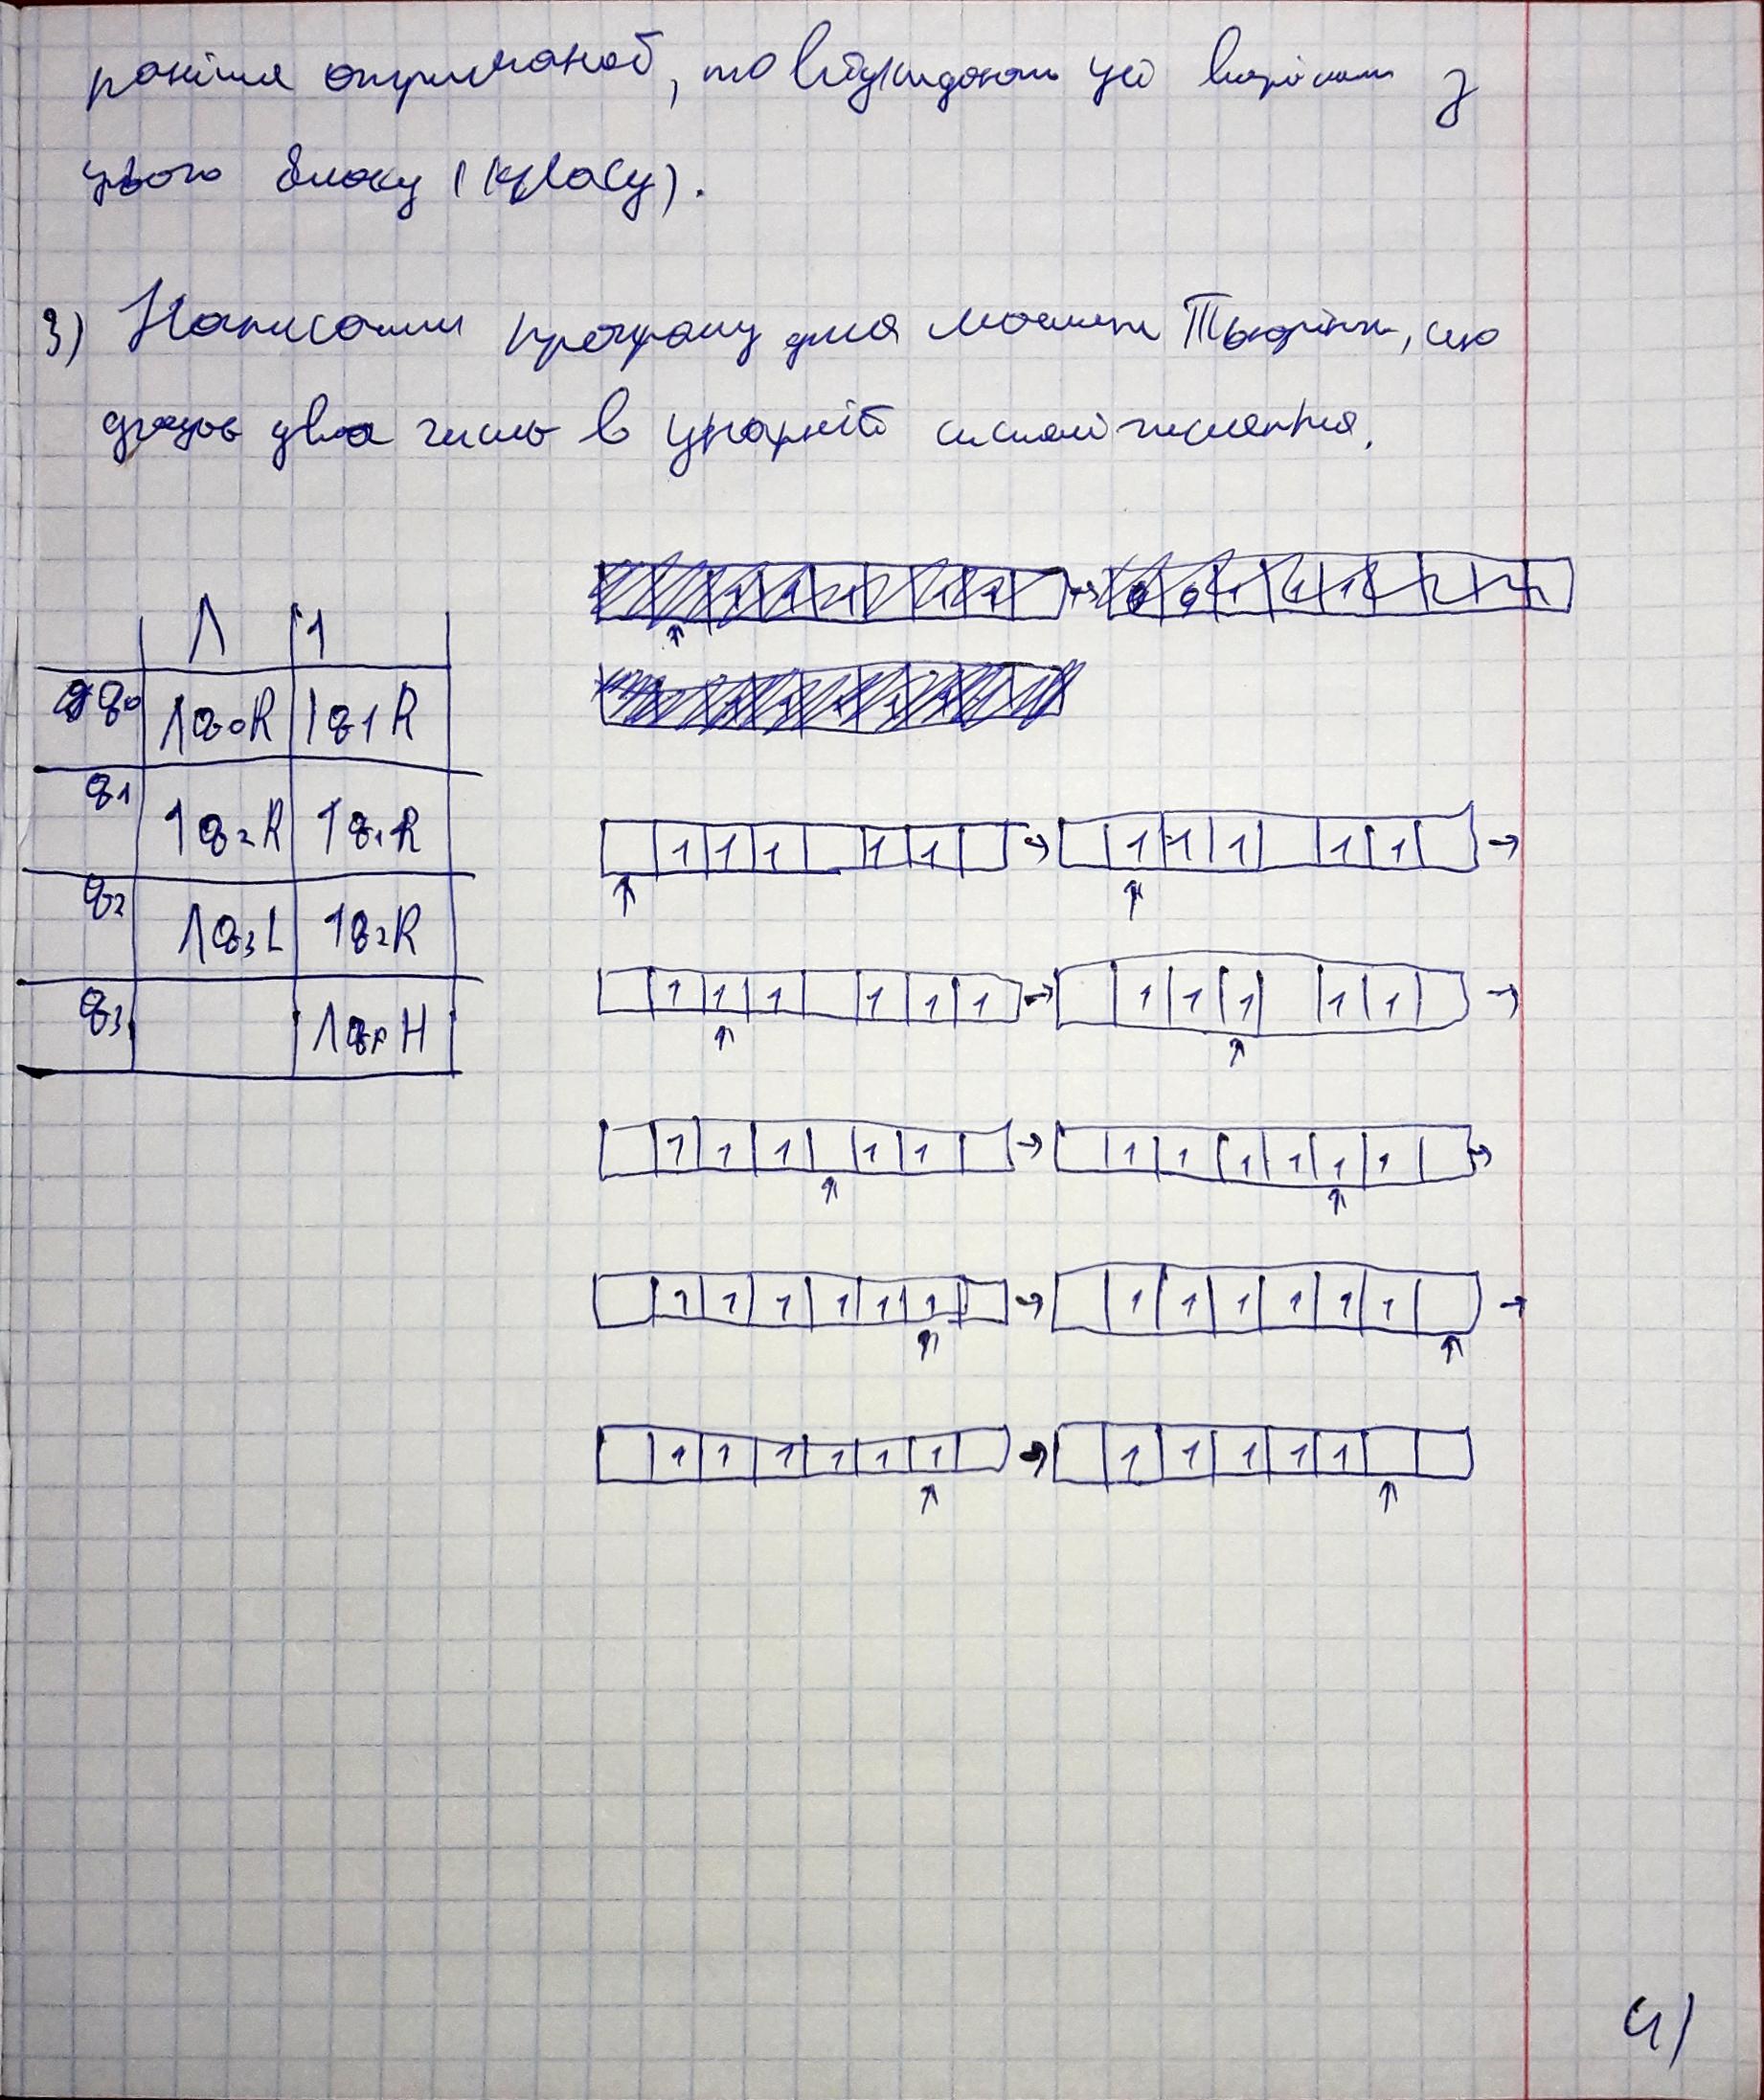 раніше отриманої, то відкидаємо цей варіант з
цього блоку (класу).
3) Написати програму для машини Тьюрінга, що
додає два числа в унарній системі числення.
Λ 1
q0 Λq0R 1q1R
q1 1q2R 1q1R
q2 Λq3L 1q2R
q3 ΛH
1 1 1 1 1 → 1 1 1 1 1 →
1 1 1 1 1 1 → 1 1 1 1 1 →
1 1 1 1 1 → 1 1 1 1 1 1 →
1 1 1 1 1 1 → 1 1 1 1 1 1 →
1 1 1 1 1 1 → 1 1 1 1 1
4)